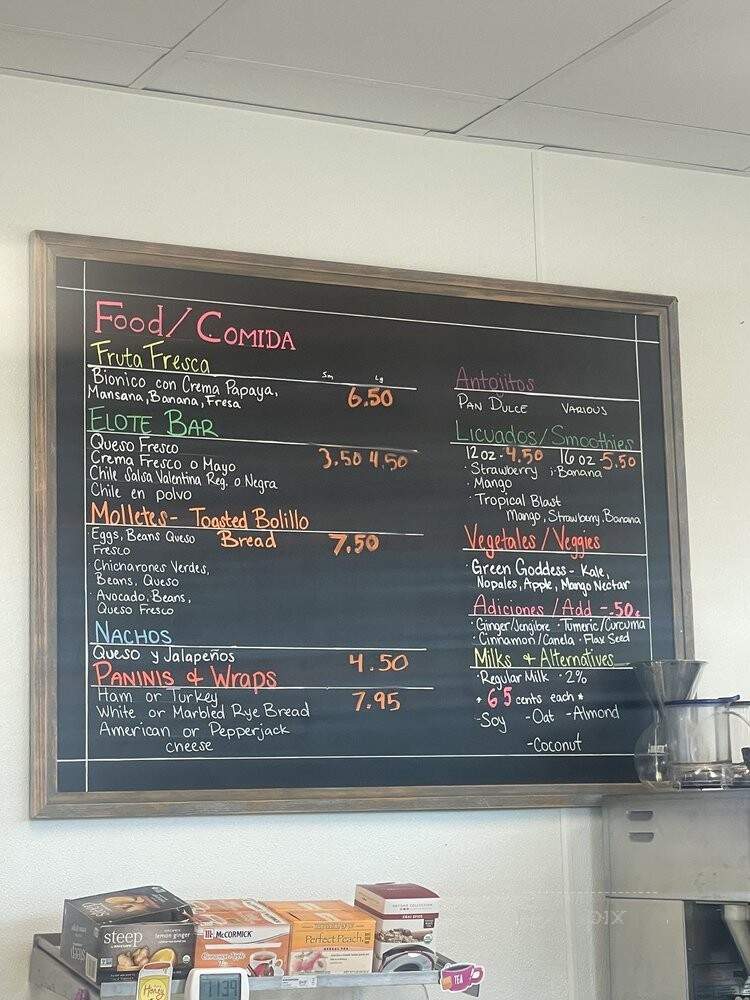 Food/COMIDA
Fruta Fresca
Sm Lg
Bionico con Crema Papaya,
Mansana, Banana, Fresa
6.50
ELOTE BAR
Queso Fresco
Crema Fresco o Mayo
Chile Salsa Valentina Reg. o Negra
Chile en polvo
3.50 4.50
Molletes- Toasted Bolillo
Bread
· Eggs, Beans Queso
Fresco
· Chicharones Verdes,
Beans, Queso
· Avocado, Beans,
Queso Fresco
7.50
NACHOS
Queso y Jalapeños
4.50
PANINIS & Wraps
Ham or Turkey
White or Marbled Rye Bread
American or Pepperjack
cheese
7.95
Antojitos
PAN DULCE VARIOUS
Licuados/Smoothies
12oz-4.50 16oz-5.50
· Strawberry · Banana
· Mango
· Tropical Blast
Mango, Strawberry, Banana
Vegetales/Veggies
· Green Goddess- Kale,
Nopales, Apple, Mango Nectar
Adiciones/Add -.50¢
· Ginger/Jengibre · Tumeric/Curcuma
· Cinnamon/Canela · Flax Seed
Milks & Alternatives
· Regular Milk · 2%
* 65 cents each *
-Soy -Oat -Almond
-Coconut
steep
lemon ginger
McCORMICK
Cinnamon Apple
Perfect Peach
Honey
1139
TEA